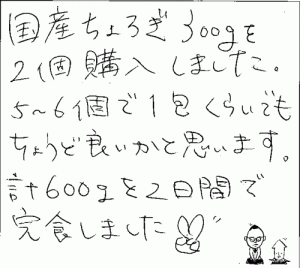 国産ちょろぎ300gを
2個購入しました。
5~6個で1包くらいでも
ちょうど良いかと思います。
計600gを2日間で
完食しました